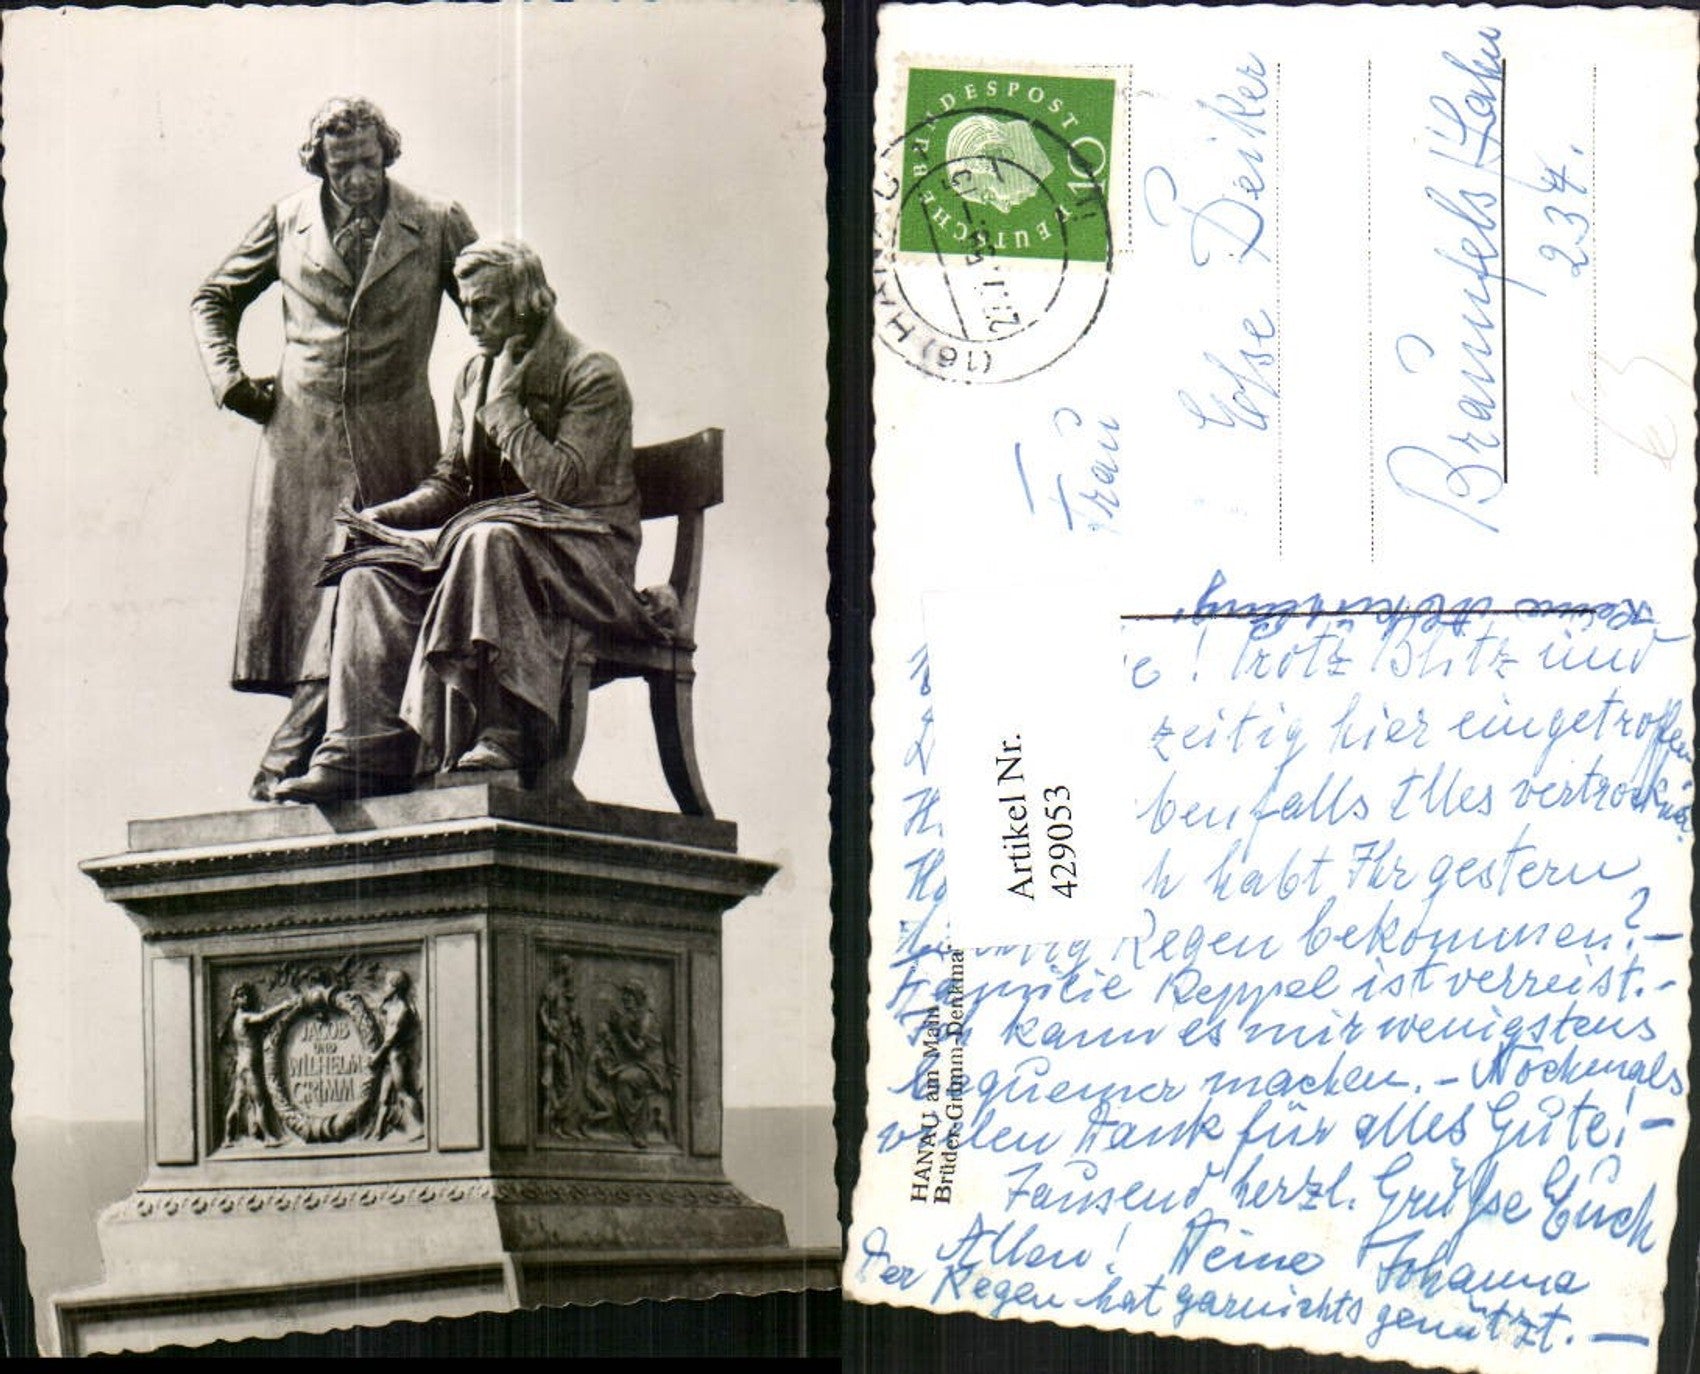 JACOB
UND
WILHELM
GRIMM
DEUTSCHE BUNDESPOST
10
(16) HANAU
Frau
Else Deiker
Braunfels/Lahn
237.
Artikel Nr.
429053
HANAU am Main
Brüder-Grimm-Denkmal
! Trotz Blitz und
zeitig hier eingetroffen
Alles vertrocknet
habt Ihr gestern
Regen bekommen? –
Familie Reppel ist verreist. –
Ich kann es mir wenigstens
bequemer machen. – Nochmals
vielen Dank für alles Gute! –
Tausend herzl. Grüße Euch
Allen! Deine Johanna
Der Regen hat garnichts genützt. –